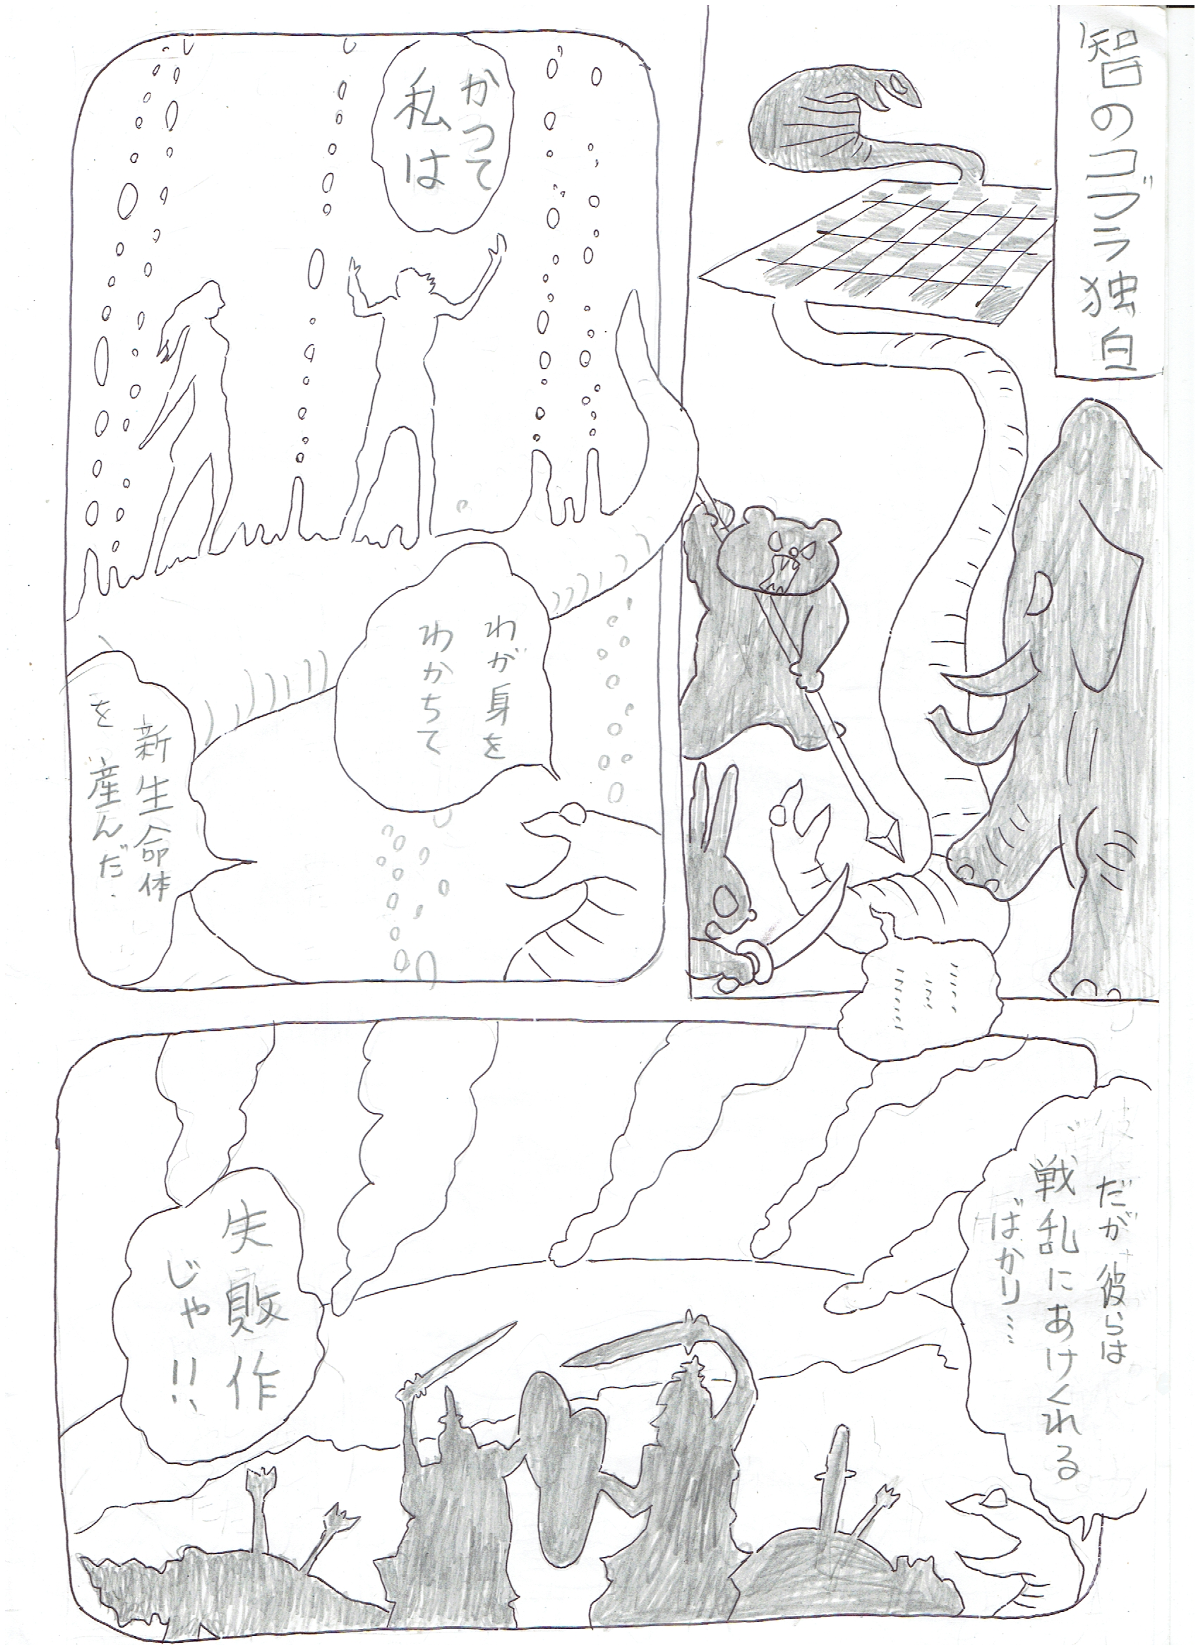 智のコブラ独白
かつて
私は
わが身を
わかちて
新生命体
を産んだ.
………
……
………
だが彼らは
戦乱にあけくれる
ばかり…
失敗作
じゃ!!